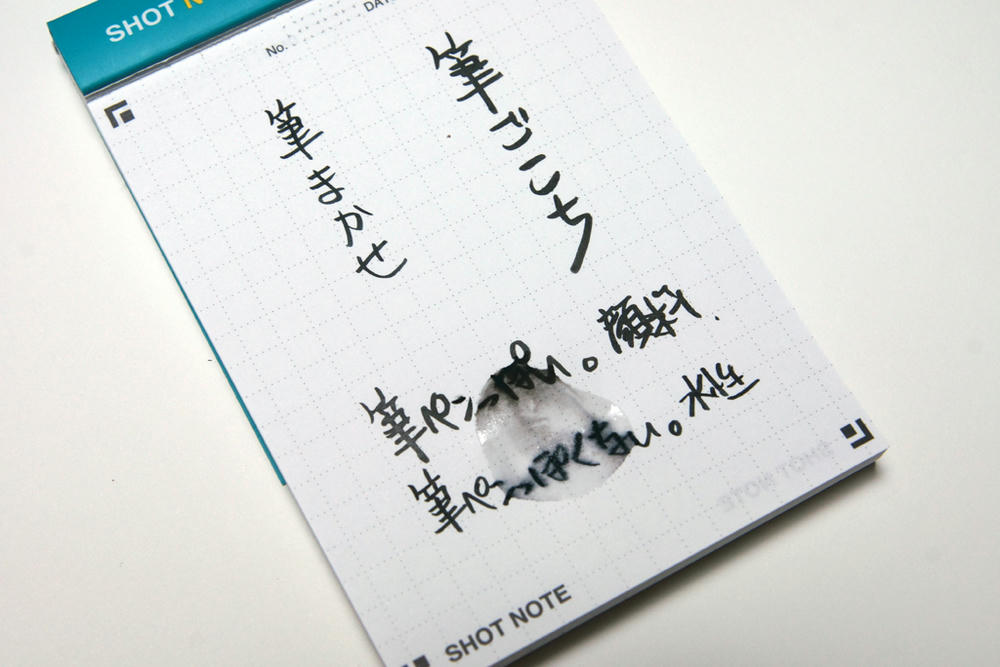 SHOT N
No.
DAT
筆ごこち
筆まかせ
筆ペンっぽい。顔料.
筆ペンっぽくない。水性
SHOT NOTE
SHOT NOTE